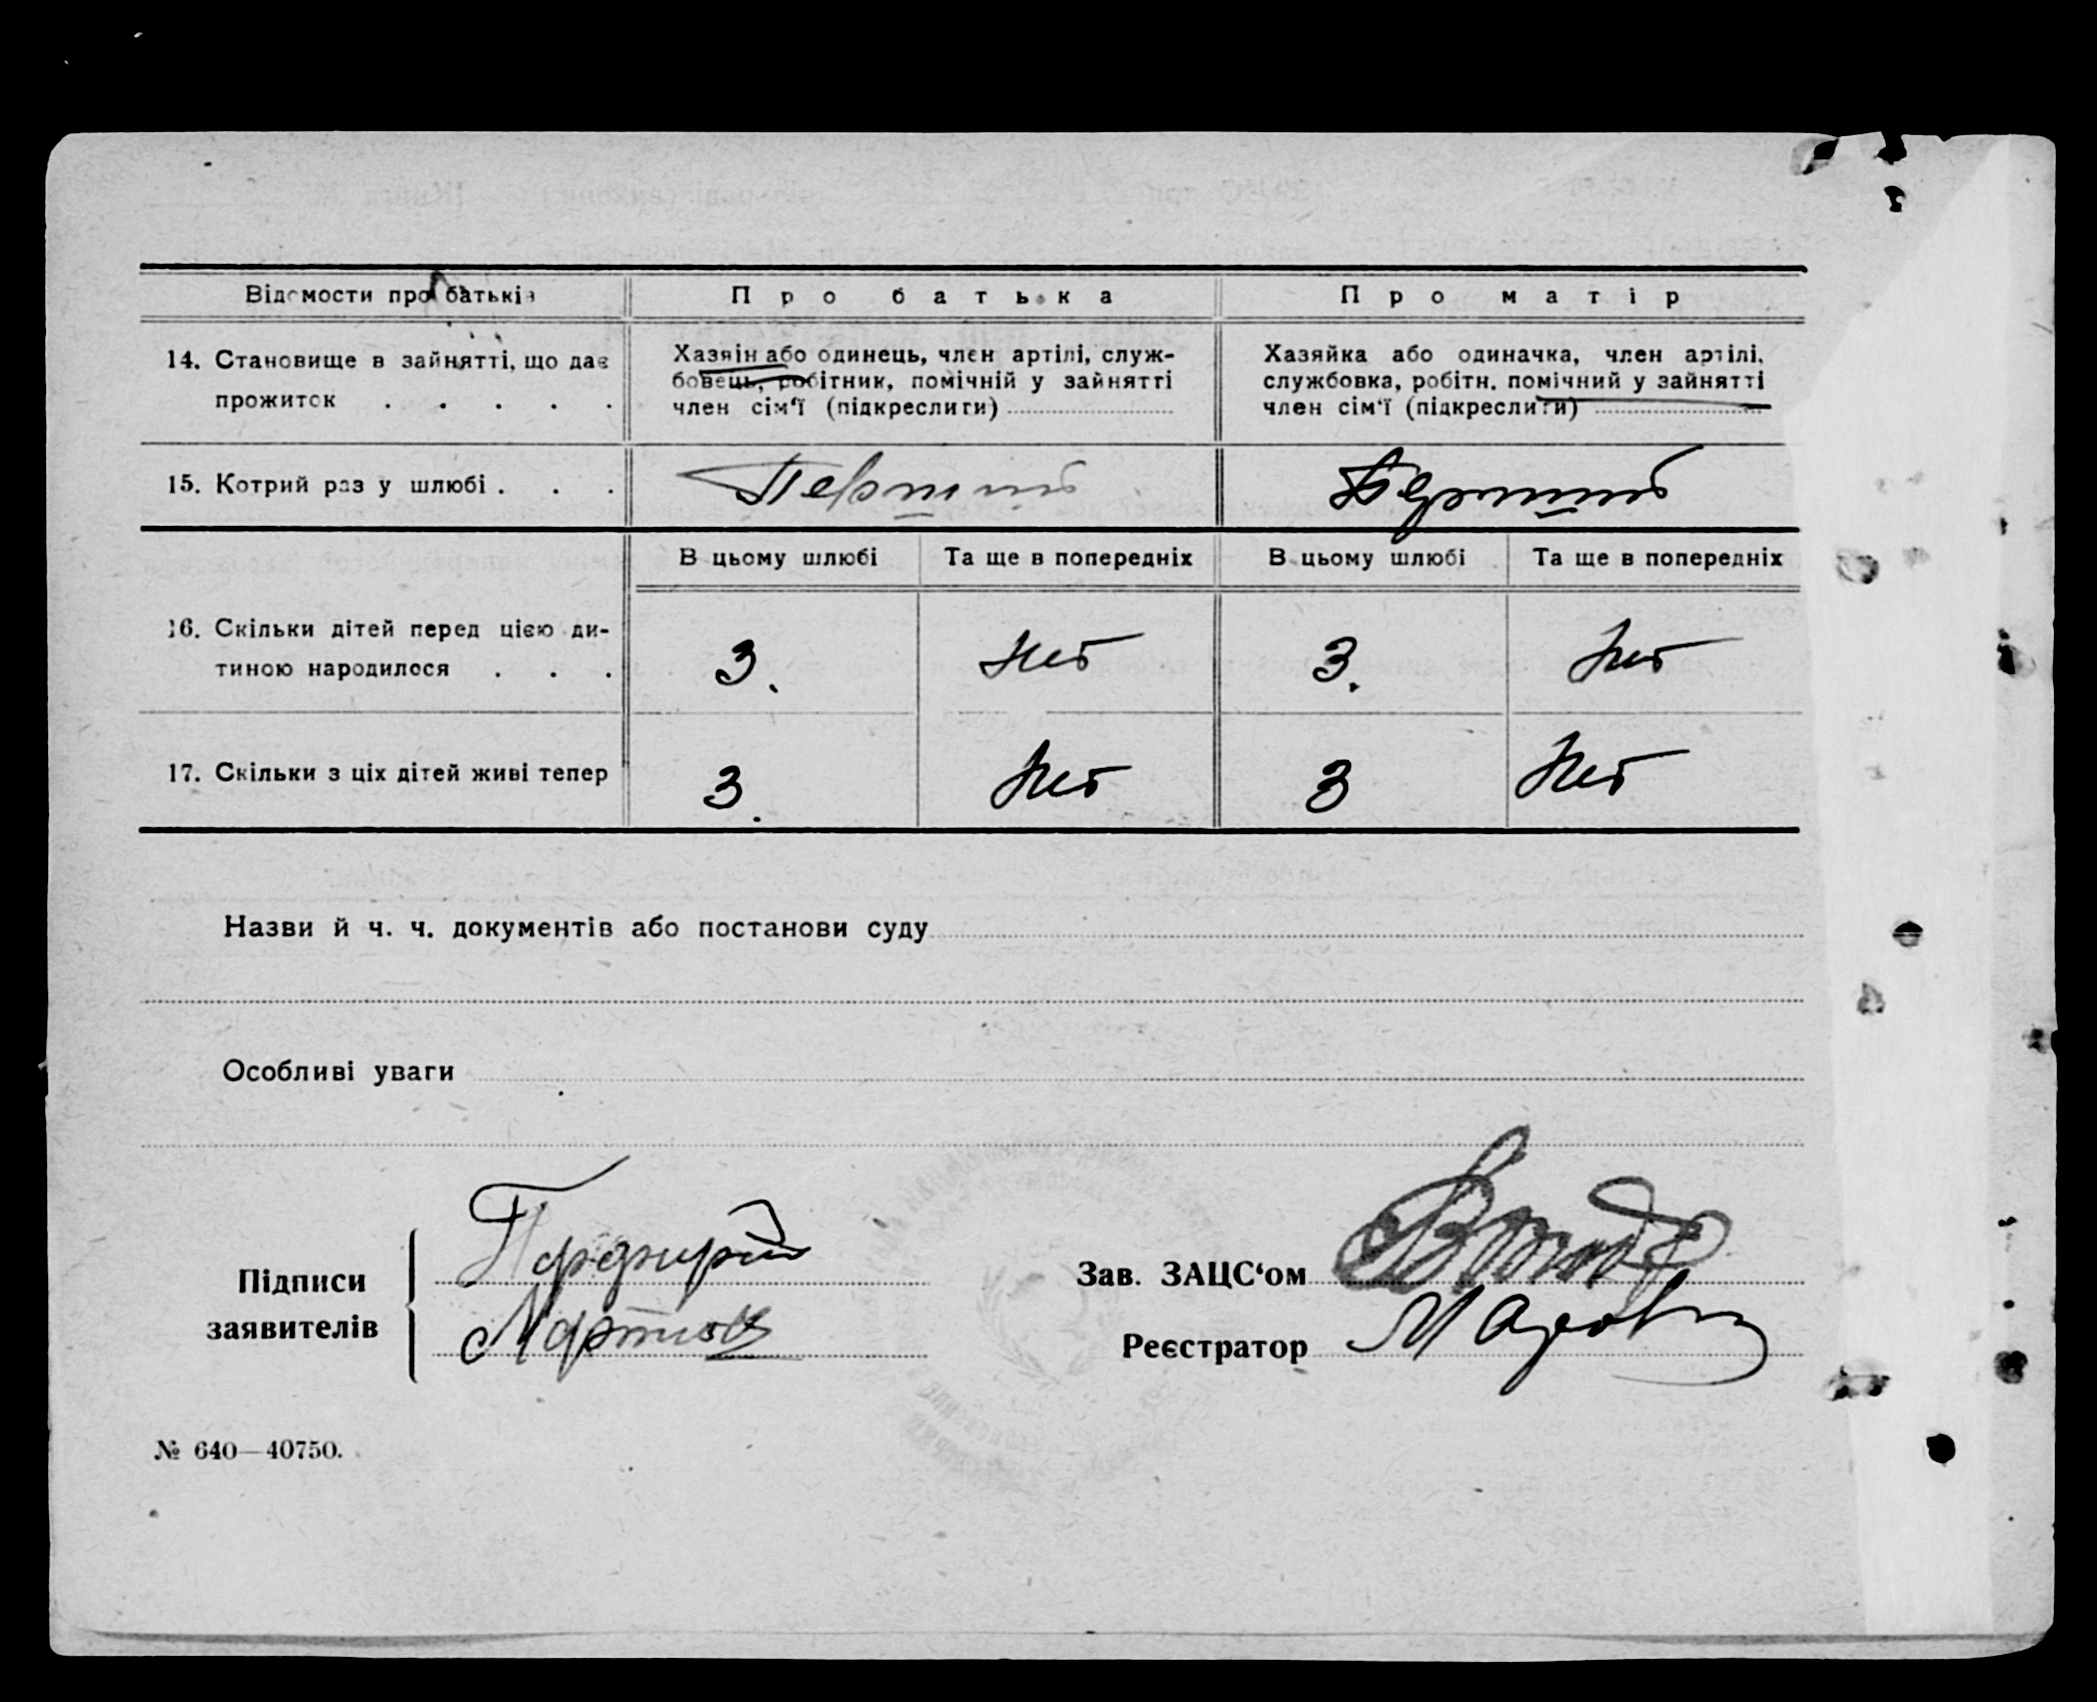 Відомости про батьків
Про батька
Про матір
14. Становище в зайнятті, що дає
прожиток . . . . .
Хазяїн або одинець, член артілі, служ-
бовець, робітник, помічній у зайнятті
член сім‘ї (підкреслити)
Хазяйка або одиначка, член артілі,
службовка, робітн. помічний у зайнятті
член сім‘ї (підкреслити)
15. Котрий раз у шлюбі . . .
Первый
Первый
В цьому шлюбі
Та ще в попередніх
В цьому шлюбі
Та ще в попередніх
16. Скільки дітей перед цією ди-
тиною народилося . . .
3.
Нет
3.
Нет
17. Скільки з ціх дітей живі тепер
3.
Нет
3
Нет
Назви й ч. ч. документів або постанови суду
Особливі уваги
Підписи
заявителів
Зав. ЗАЦС‘ом
Реєстратор
№ 640—40750.